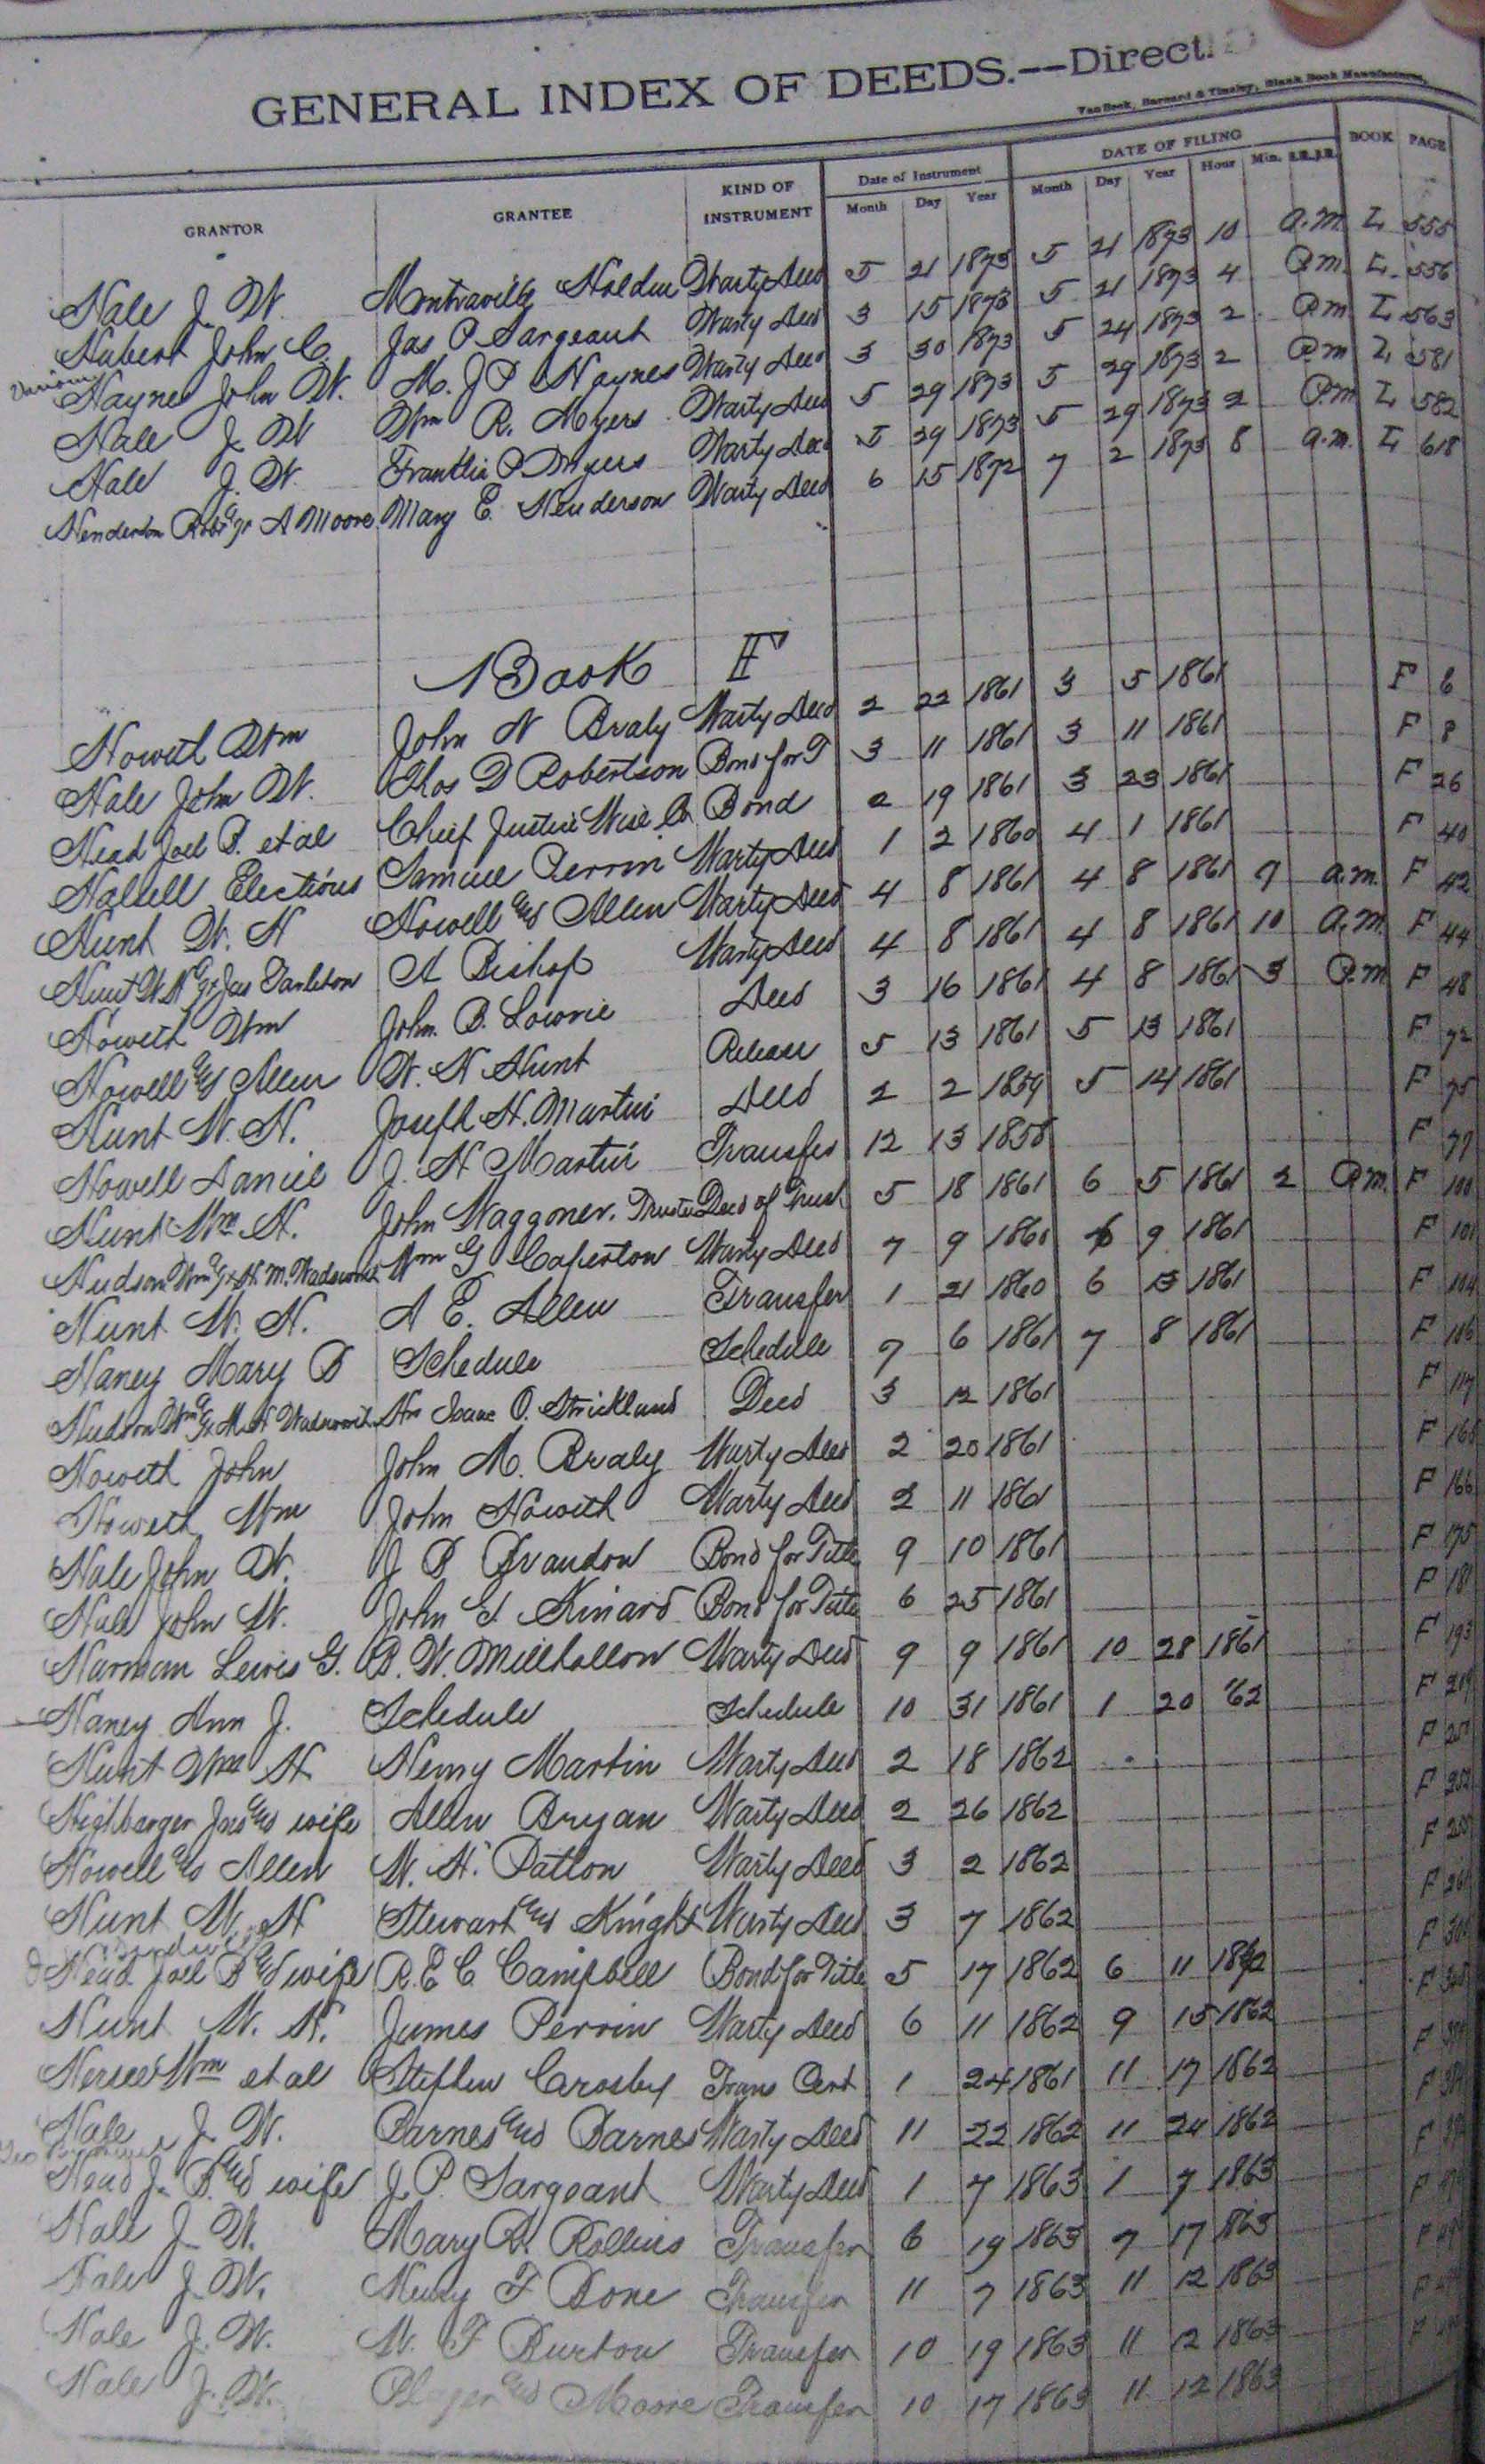 GENERAL INDEX OF DEEDS.--Direct.
Van Beek, Barnard & Tinsley, Blank Book Manufacturers,
GRANTOR GRANTEE KIND OF INSTRUMENT Date of Instrument DATE OF FILING BOOK PAGE
Month Day Year Month Day Year Hour Min.
Hale J. W. Montraville Holden Warty Deed 5 21 1873 5 21 1873 10 A.M. L 555
Hubert John C. Jas P Sargeant Warty Deed 3 15 1873 5 21 1873 4 P.M. L 556
Haynes John W. M. J P Haynes Warty Deed 3 30 1873 5 24 1873 2 P.M. L 563
Hale J. W Wm R. Myers Warty Deed 5 29 1873 5 29 1873 2 P.M. L 581
Hale J. W. Franklin P Myers Warty Deed 5 29 1873 5 29 1873 2 P.M. L 582
Henderson Robt Gr A Moore Mary E. Henderson Warty Deed 6 15 1872 7 2 1873 8 A.M. L 618
Book F
Howeth Wm John N Braly Warty Deed 2 22 1861 3 5 1861 F 6
Hale John W. Thos D Robertson Bond for T 3 11 1861 3 11 1861 F 8
Head Joel B. et al Chief Justice Wise Co Bond 2 19 1861 3 23 1861 F 26
Halsell Electious Samuel Perrin Warty Deed 1 2 1860 4 1 1861 F 40
Hunt W. H Howell and Allen Warty Deed 4 8 1861 4 8 1861 9 A.M. F 42
Hunt W H Gr Jas Tarleton A Bishop Warty Deed 4 8 1861 4 8 1861 10 A.M. F 44
Howeth Wm John B. Lowrie Deed 3 16 1861 4 8 1861 3 P.M. F 48
Howell and Allen W. H Hunt Release 5 13 1861 5 13 1861 F 72
Hunt W. H. Joseph H. Martin Deed 2 2 1859 5 14 1861 F 75
Howell Daniel J. H Martin Transfer 12 13 1858 F 77
Hunt Wm H. John Waggoner. Trustee Deed of Trust 5 18 1861 6 5 1861 2 P.M. F 100
Hudson Wm Gr H. M. Wadsworth Wm G Caperton Warty Deed 7 9 1860 6 9 1861 F 101
Hunt W. H. A E. Allen Transfer 1 21 1860 6 13 1861 F 104
Haney Mary B Schedule Schedule 7 6 1861 7 8 1861 F 106
Hudson Wm Gr M. H Wadsworth Hrs Isaac O. Strickland Deed 3 12 1861 F 117
Howeth John John M. Braly Warty Deed 2 20 1861 F 165
Howeth Wm John Howeth Warty Deed 2 11 1861 F 166
Hale John W. J B Brandon Bond for Title 9 10 1861 F 175
Hale John W. John G Kinard Bond for Title 6 25 1861 F 181
Harman Lewis G. B. W. Millhollon Warty Deed 9 9 1861 10 28 1861 F 193
Haney Ann J. Schedule Schedule 10 31 1861 1 20 '62 F 219
Hunt Wm H Henry Martin Warty Deed 2 18 1862 F
Highbarger Jas and wife Allen Bryan Warty Deed 2 26 1862 F 252
Howell and Allen W. H. Patton Warty Deed 3 2 1862 F
Hunt W. H Stewart and Knight Warty Deed 3 7 1862 F 261
Head Joel B and wife R. E C Campbell Bond for Title 5 17 1862 6 11 1862 F
Hunt W. H. James Perrin Warty Deed 6 11 1862 9 15 1862 F
Wm et al Stephen Crosby Trans Cert 1 24 1861 11 17 1862 F
Hale J. W. Barnes and Barnes Warty Deed 11 22 1862 11 24 1862 F
Head J. B. and wife J. P. Sargeant Warty Deed 1 7 1863 1 7 1863 F
Hale J. W. Mary R. Rollins Transfer 6 19 1863 7 17 1863 F
Hale J. W. Henry F Bone Transfer 11 7 1863 11 12 1863 F
Hale J. W. W. F Burton Transfer 10 19 1863 11 12 1863 F
Hale J. W. Player and Moore Transfer 10 17 1863 11 12 1863